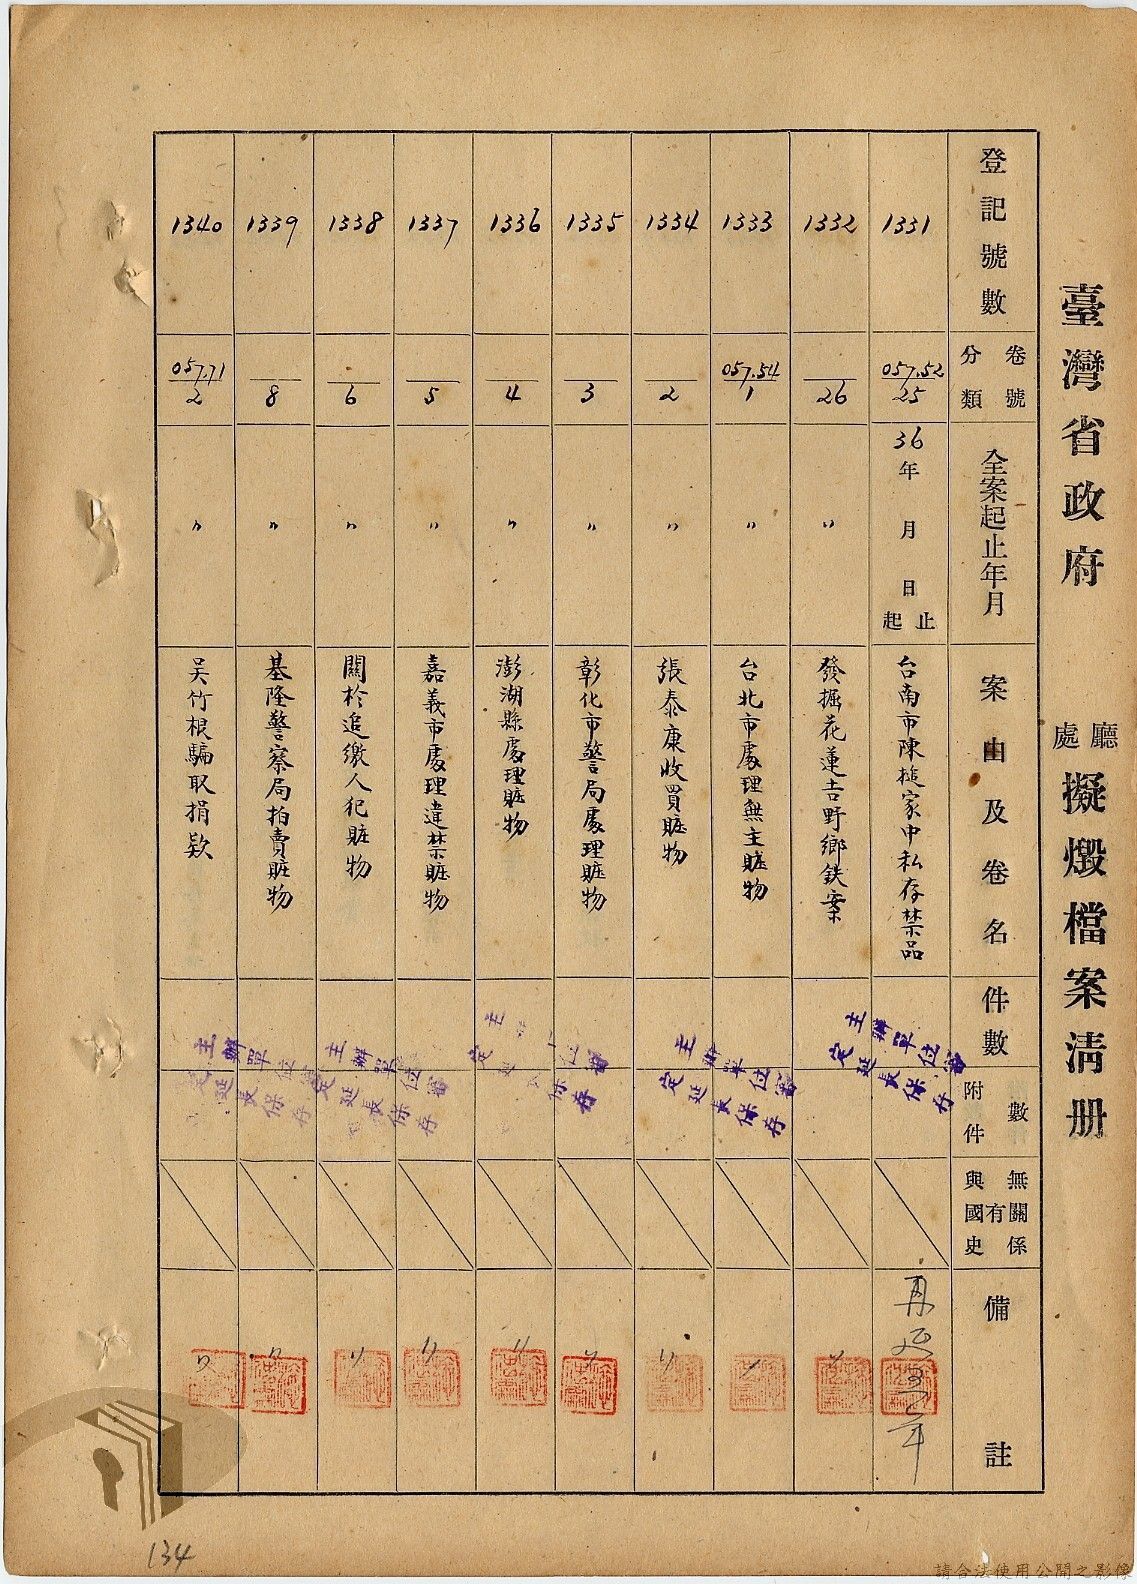 臺灣省政府 廳處 擬燬檔案清冊
登記號數
卷號
分類
全案起止年月
案由及卷名
件數
附件數
與國史有無關係
備註
1331
057.52
25
36年 月 日 起止
台南市陳搥家中私存禁品
主辦單位審定延長保存
再延
年
1332
26
〃
發掘花蓮吉野鄉鉄案
〃
1333
057.54
1
〃
台北市處理無主贓物
主辦單位審定延長保存
〃
1334
2
〃
張泰康收買贓物
〃
1335
3
〃
彰化市警局處理贓物
位審
保存
〃
1336
4
〃
澎湖縣處理贓物
主
定延
〃
1337
5
〃
嘉義市處理違禁贓物
〃
1338
6
〃
關於追繳人犯贓物
主辦單位審定延長保存
〃
1339
8
〃
基隆警察局拍賣贓物
〃
1340
057.71
2
〃
吳竹根騙取捐款
主辦單位
定延長保存
〃
134
請合法使用公開之影像